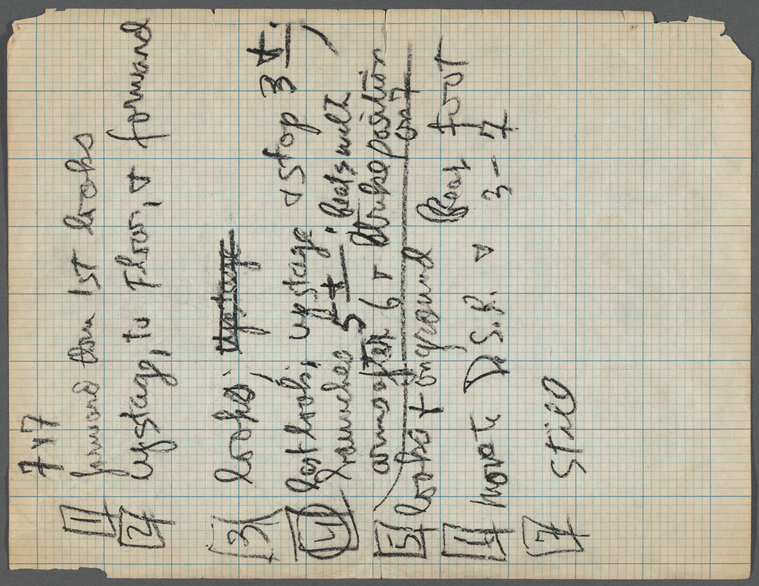 7 x 7
1 forward than 1st looks
2 upstage, to Floor, + forward
3 looks; upstage
4 last look, upstage + stop 3
launches 5 beats with
arms after 6 + strike position
5 looks + on ground Rear foot
move D.S.R. + 3 - 7
7 still